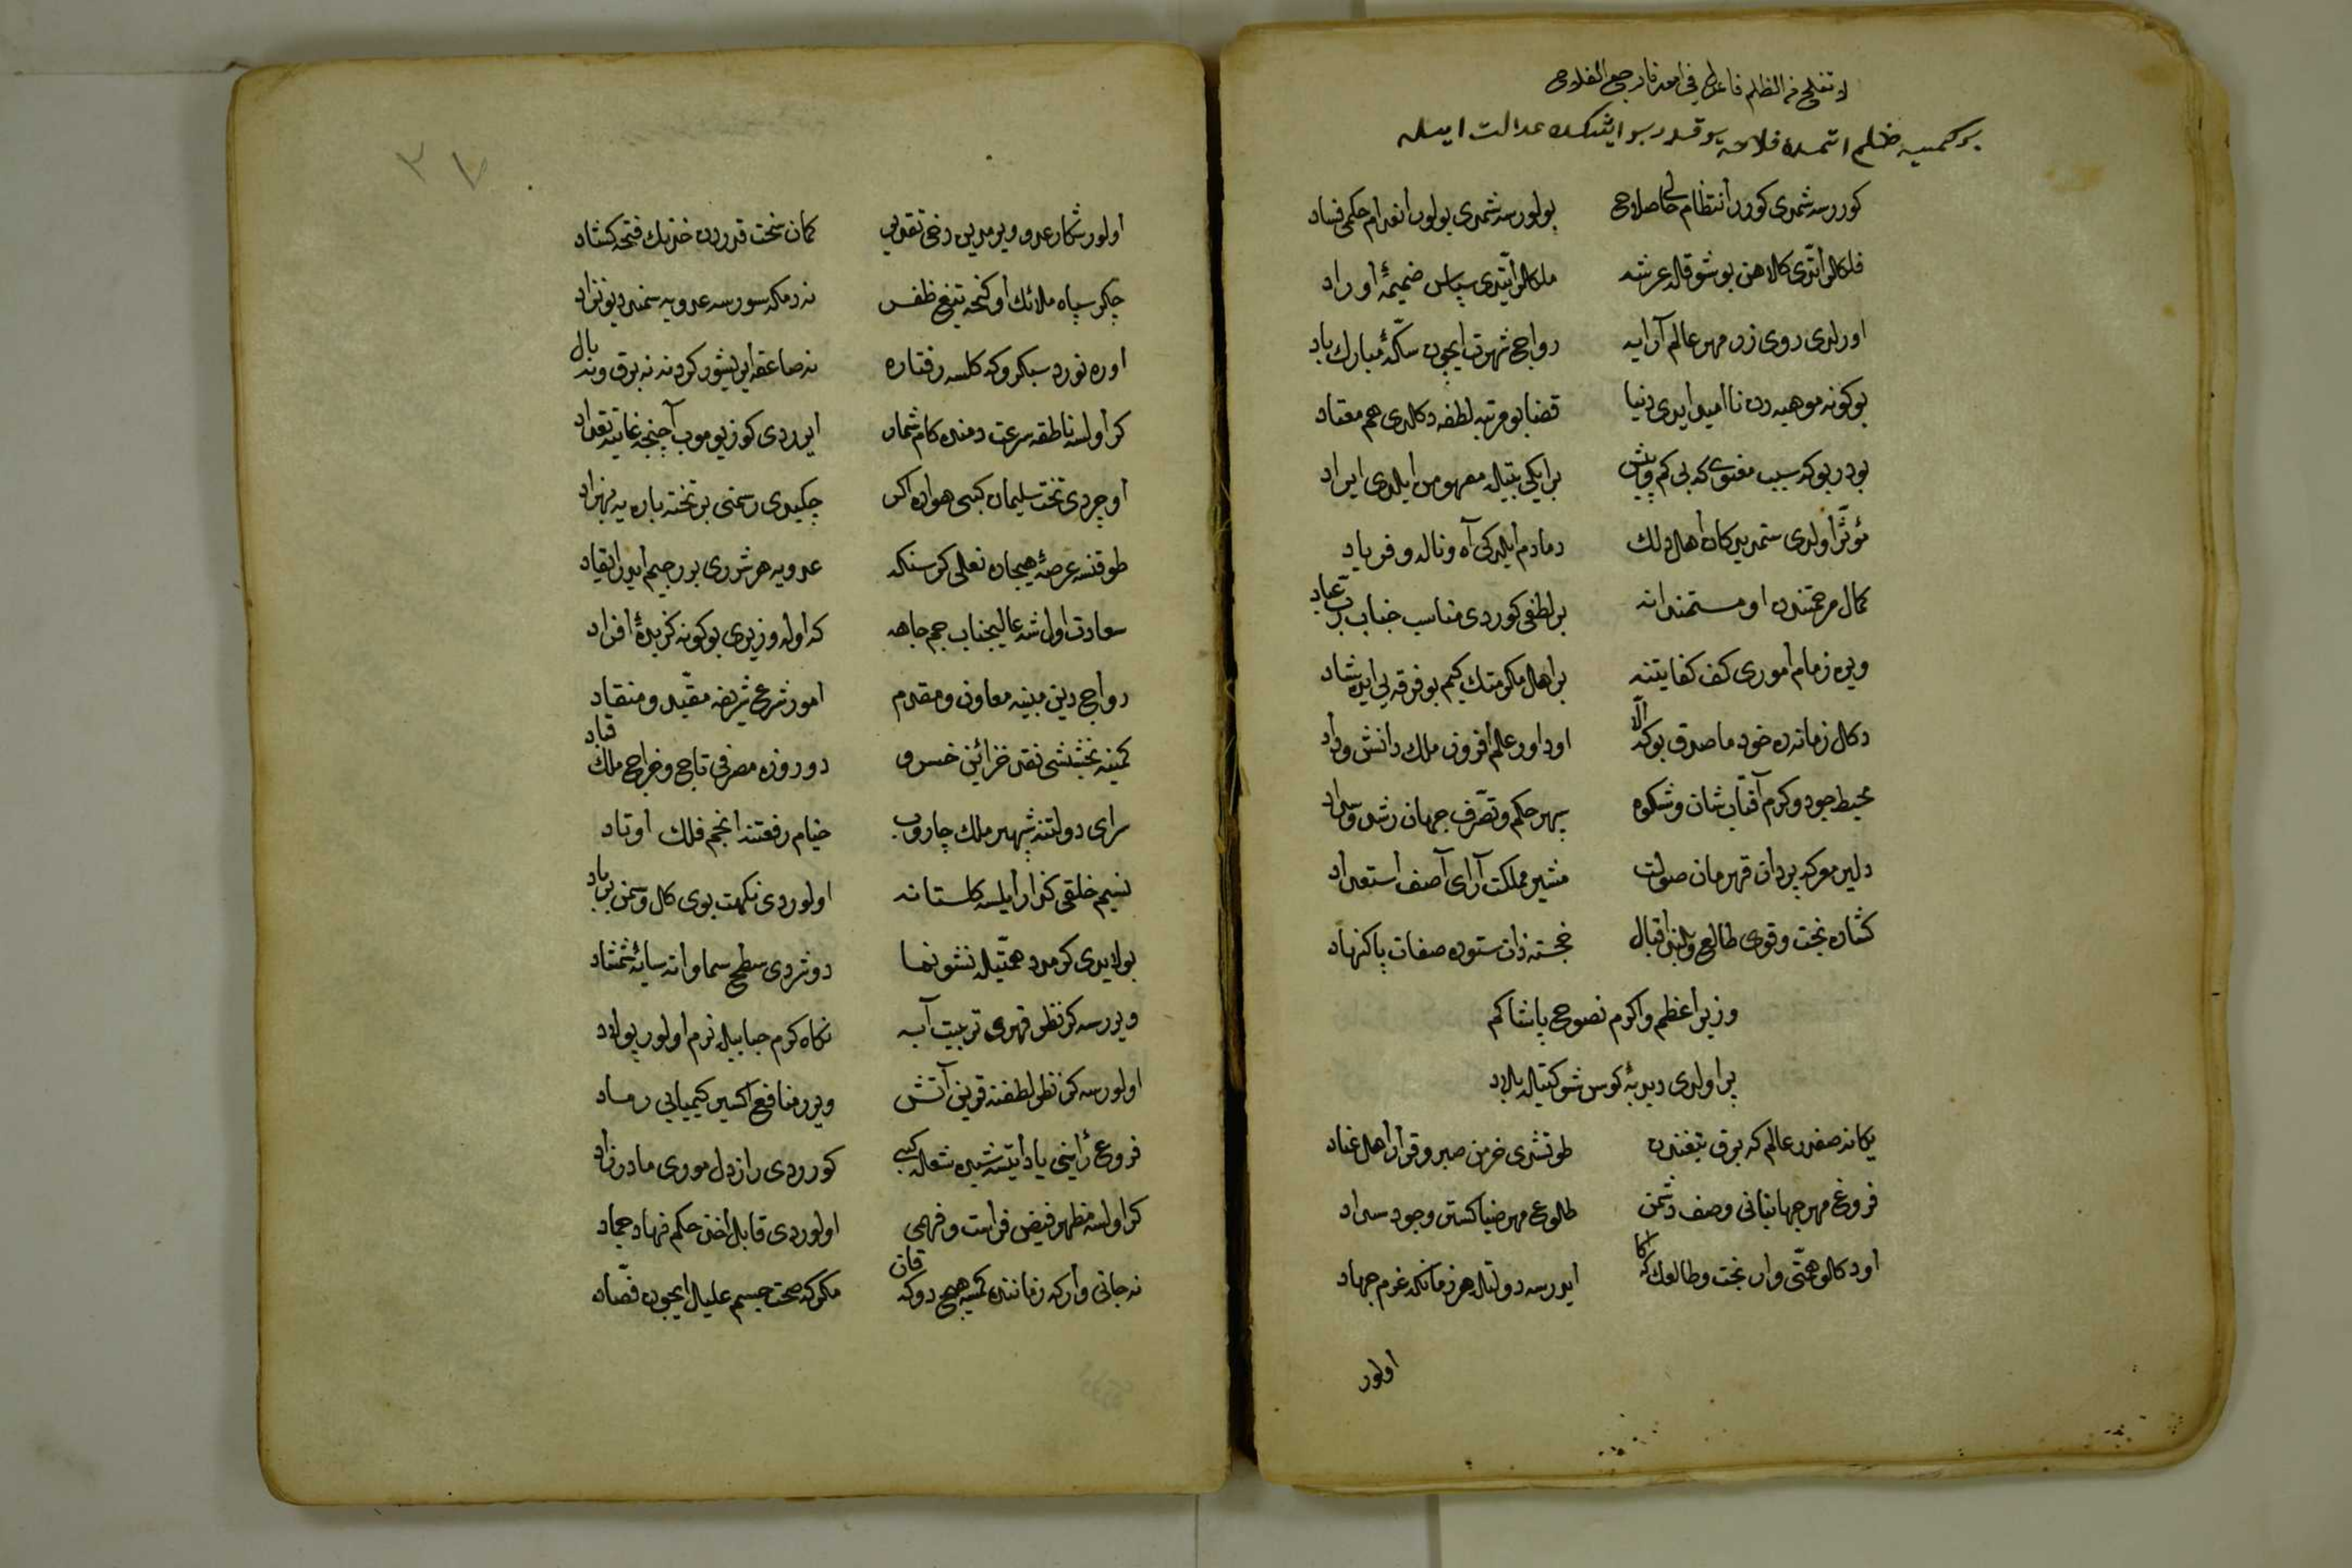 لا تفلح فى الظلم فاعدل فى امور فارجع الفلاح
بر كمسيه ظلم اتمده فلاح يوقدر بو ايشكده عدالت ايله
كورر سه شمدى كورر انتظام صلاح بولور سه شمدى بولور انعدام حكم فساد
فلكلر ايتدى كلاهن بو شوقله عرشه ملكلر ايتدى سپاس ضميمهٔ اوراد
اورلدى روى زر مهر عالم آرايه رواج شهرت ايچون سكّهٔ مبارك باد
بو كونه موهبه دن نا اميد ايدى دنيا قضا بو مرتبه لطفه دكلدى هم معتاد
بودر بو كه سبب معنوى كه بى كم و بيش بر ايكى بيتيله مفهومن ايلدى ايراد
مؤثّر اولدى ستمديدكان اهل دلك دمادم ايلديكى آه و ناله و فرياد
كمال مرحمتندن او مستمندانه بر لطفى كوردى مناسب جناب ربّ عباد
ويره زمام امورى كف كفايتنه بر اهل مكرمتك كيم بو فرقه يى ايده شاد
دكل زمانده خود ما صدق بوكه الّا او داور عالم افروز ملك دانش و داد
محيط جود و كرم آفتاب شان و شكوه سپهر حكم و تصرّف جهان رشد و سداد
دلير معركه پرداز قهرمان صولت مشير مملكت آراى آصف استعداد
كشاده بخت و قوى طالع و بلند اقبال خجسته ذات ستوده صفات پاك نهاد
وزير اعظم و اكرم نصوح پاشا كم
پر اولدى دبدبهٔ كوس شوكتيله بلاد
يكانه صفدر عالم كه برق تيغندن طوتشدى خرمن صبر و قرار اهل عناد
فروغ مهر جهانبانى وصف دشمن طلوع مهر ضيا كستر وجود سواد
او دكلو همّتى وار بخت و طالعك كه اكا ايدر سه دولتله هر زمانكه عزم جهاد
اولور
اولور شكار عدو ويرمدين دخى تعديب كمان سخت قدردن خدنك فتحه كشاد
چكر سپاه ملائك اوكنجه تيغ ظفر نه دمكه سور سه عدويه سمند ديو نژاد
اوره نورد سبكرو كه كلسه رفتاره نه صاعقه ايريشور كردنه نه برق و نه باد
كر اولسه ناطقه سرعتده منده كام شمار ايدردى كوز يوموب آچنجه غايتده تعداد
اوچردى تخت سليمان كبى هواده اكر چكيدى رسمنى بر تخته پاره يه بهزاد
طوقنسه عرصهٔ هيجاده نعلى كر سنكه عدويه هر شررى بر رجيم ايدر ايقاد
سعادت اول شه عاليجناب جم جاهه كه اوله وزيرى بو كونه كزيدهٔ افراد
رواج دين مبينه معاون و مقدم امور شرع شريفه مقيّد و منقاد
كمينه بخششى نقد خزائن خسرو دو روزه مصرفى تاج و خراج ملك قباد
سراى دولتنه شهپر ملك جاروب خيام رفعتنه انجم فلك اوتاد
نسيم خلقى كذار ايلسه كلستانه اولوردى نكهت بوى كل و سمن بر باد
بولايدى كرمدد همّتيله نشو و نما دوشردى سطح سماواته سايهٔ شمشاد
ويررسه كر نظر قهرى تربيت آبه نكاه كرم حبابيله نرم اولور پولاد
اولورسه كر نظر لطفنه قرين آتش ويرر منافع اكسير كيميايى رماد
فروغ رأينى ياد ايتسه شبده شعله كبى كوردى راز دل مورى مادرزاد
كر اولسه مظهر فيض فراست و فهمى اولوردى قابل اخذ حكم نهاد جماد
نه جانى وار كه زماننده كمسيه هيچ دوكه قان مكر كه صحت جسم عليل ايچون فصّاد